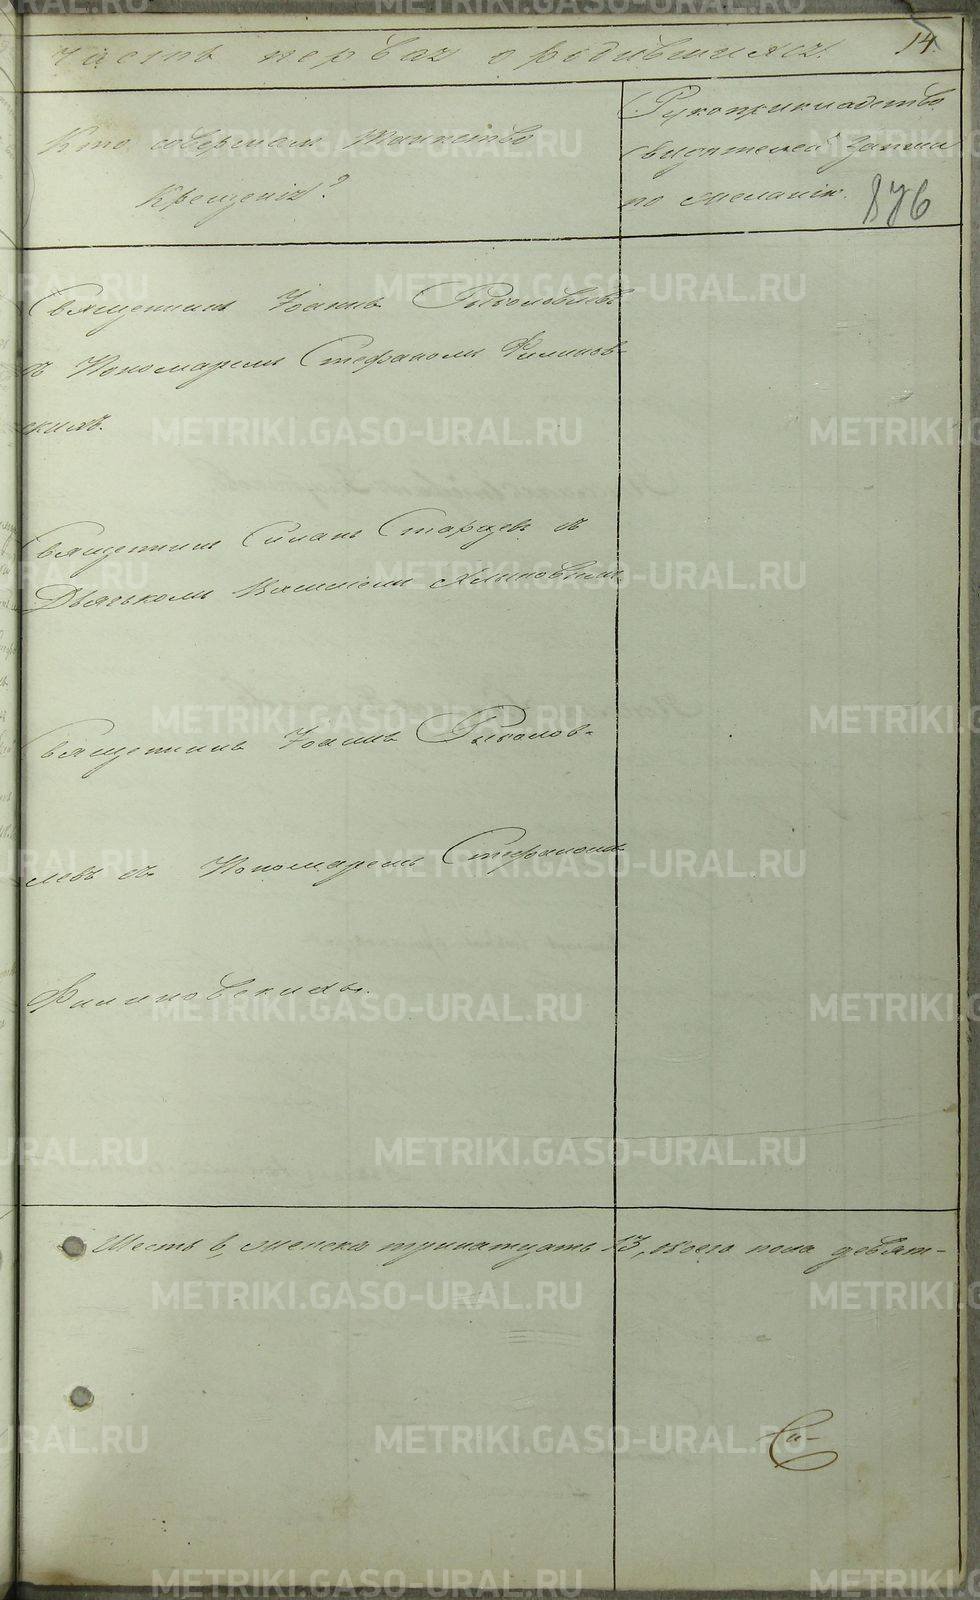 часть первая о родившихся.
14.
Кто совершалъ Таинство
Крещенія?
Рукоприкладство
свидѣтелей записи
по желанію.
876
Священникъ Іоаннъ
съ Пономаремъ Стефаномъ Филинов-
скимъ.
Священникъ Симонъ Старцевъ съ
Дьячкомъ Василіемъ Хлыновымъ
Священникъ Іоаннъ
левъ съ Пономаремъ Стефаномъ
Филиновскимъ.
Шесть 6, женска тринатцать 13, обоего пола девят-
METRIKI.GASO-URAL.RU